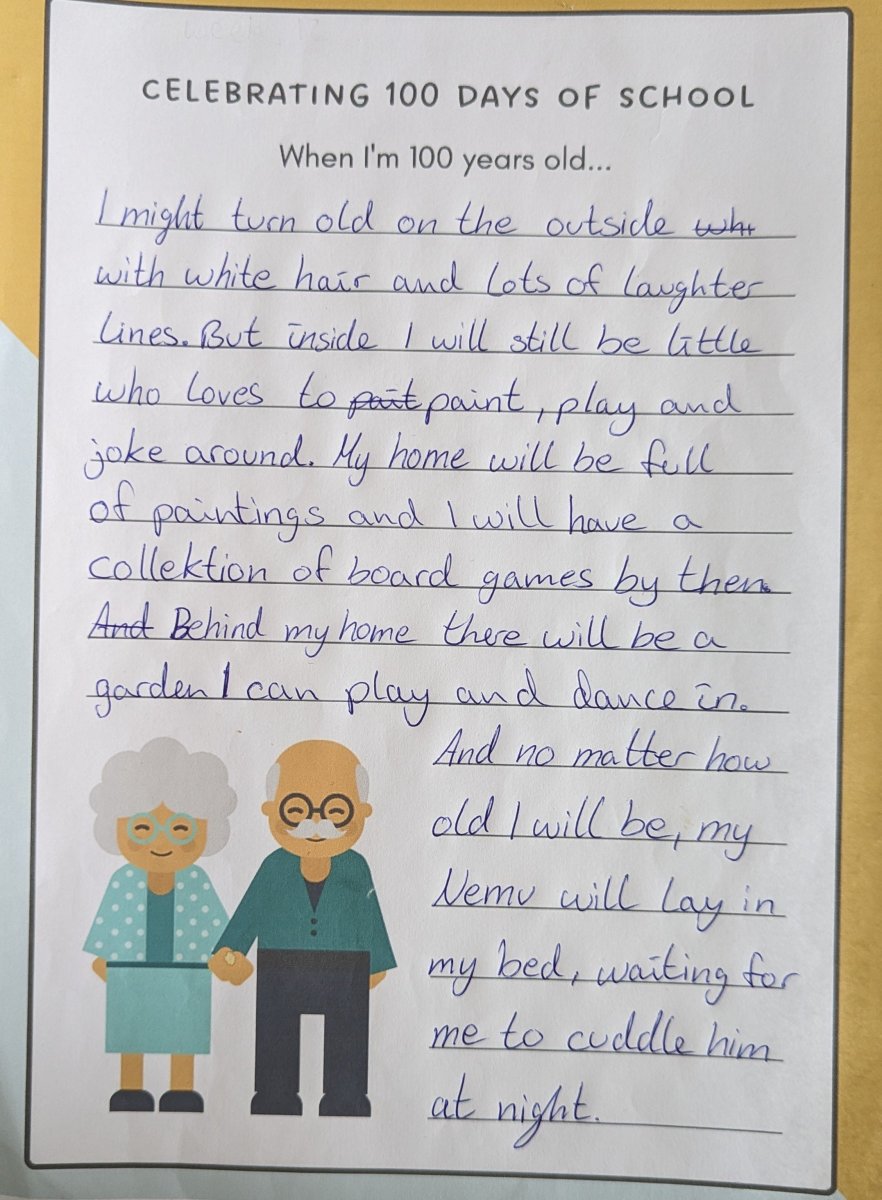 CELEBRATING 100 DAYS OF SCHOOL
When I'm 100 years old...
I might turn old on the outside whi
with white hair and lots of laughter
lines. But inside I will still be little
who loves to pait paint, play and
joke around. My home will be full
of paintings and I will have a
collektion of board games by then.
And Behind my home there will be a
garden I can play and dance in.
And no matter how
old I will be, my
Nemu will lay in
my bed, waiting for
me to cuddle him
at night.